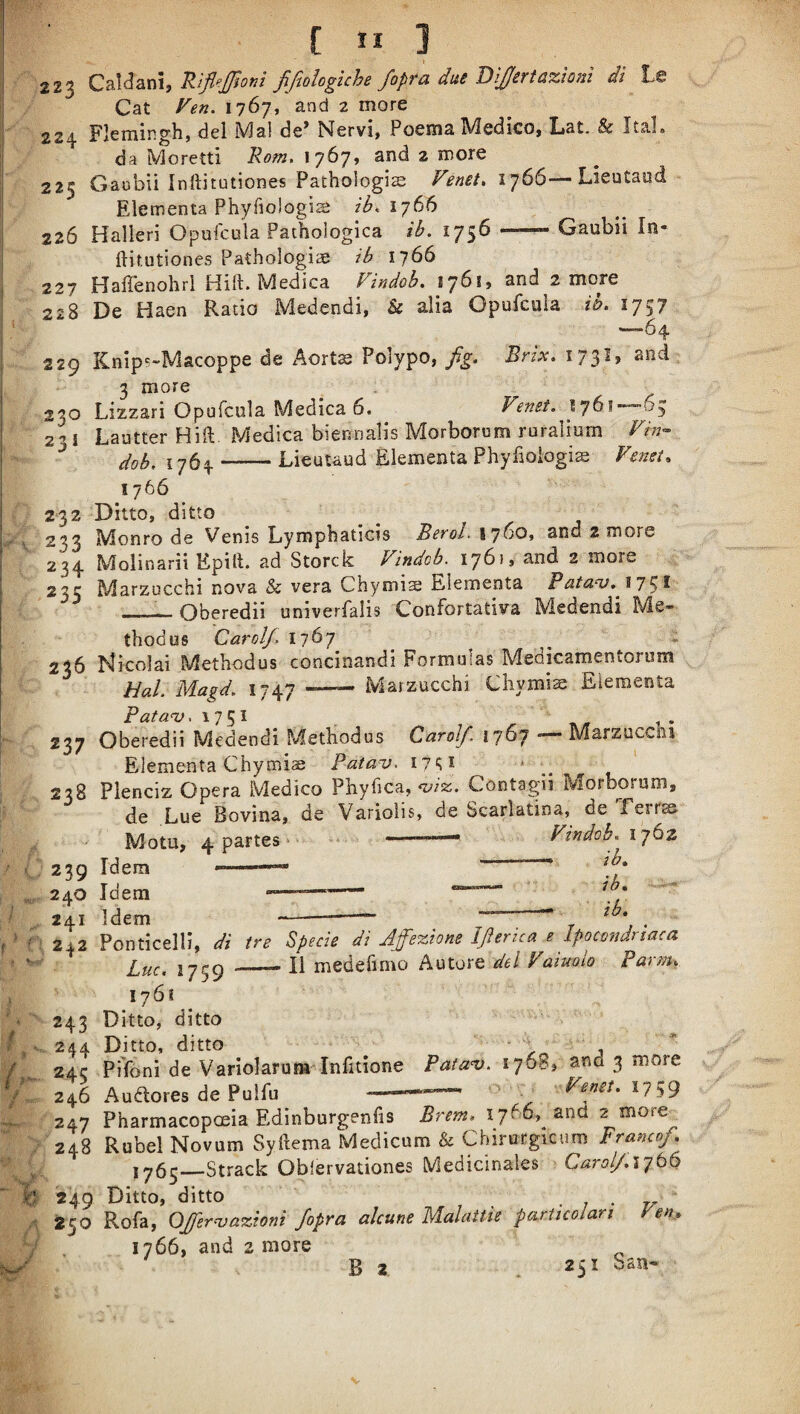 [ 11 ]
223 Caldani, Rifleſſioni fiſiologiche ſopra due Diſſertazioni di Le
Cat Ven. 1767, and 2 more
224 Flemingh, del Mal de' Nervi, Poema Medico, Lat. & Ital.
da Moretti Rom. 1767, and 2 more
225 Gaubii Inſtitutiones Pathologiæ Venet. 1766—Lieutaud
Elementa Phyſiologiæ ib. 1766
226 Halleri Opuſcula Pathologica ib. 1756 —— Gaubii In-
ſtitutiones Pathologiæ ib 1766
227 Haſſenohrl Hiſt. Medica Vindob. 1761, and 2 more
228 De Haen Ratio Medendi, & alia Opuſcula ib. 1757
—64
229 Knips-Macoppe de Aortæ Polypo, fig. Brix. 1731, and
3 more
230 Lizzari Opuſcula Medica 6. Venet. 1761—65
231 Lautter Hiſt. Medica biennalis Morborum ruralium Vin-
dob. 1764 —— Lieutaud Elementa Phyſiologiæ Venet.
1766
232 Ditto, ditto
233 Monro de Venis Lymphaticis Berol. 1760, and 2 more
234 Molinarii Epiſt. ad Storck Vindob. 1761, and 2 more
235 Marzucchi nova & vera Chymiæ Elementa Patav. 1751
—— Oberedii univerſalis Confortativa Medendi Me-
thodus Carolſ. 1767
236 Nicolai Methodus concinandi Formulas Medicamentorum
Hal. Magd. 1747 —— Marzucchi Chymiæ Elementa
Patav. 1751
237 Oberedii Medendi Methodus Carolſ. 1767 — Marzucchi
Elementa Chymiæ Patav. 1751
238 Plenciz Opera Medico Phyſica, viz. Contagii Morborum,
de Lue Bovina, de Variolis, de Scarlatina, de Terræ
Motu, 4 partes —— Vindob. 1762
239 Idem —— —— ib.
240 Idem —— —— ib.
241 Idem —— —— ib.
242 Ponticelli, di tre Specie di Affezione Iſterica e Ipocondriaca
Luc. 1759 —— Il medeſimo Autore del Vaiuolo Parm.
1761
243 Ditto, ditto
244 Ditto, ditto
245 Piſoni de Variolarum Inſitione Patav. 1768, and 3 more
246 Auctores de Pulſu —— Venet. 1759
247 Pharmacopœia Edinburgenſis Brem. 1766, and 2 more
248 Rubel Novum Syſtema Medicum & Chirurgicum Francof.
1765—Strack Obſervationes Medicinales Carolſ. 1766
249 Ditto, ditto
250 Roſa, Oſſervazioni ſopra alcune Malattie particolari Ven.
1766, and 2 more
B 2 251 San-